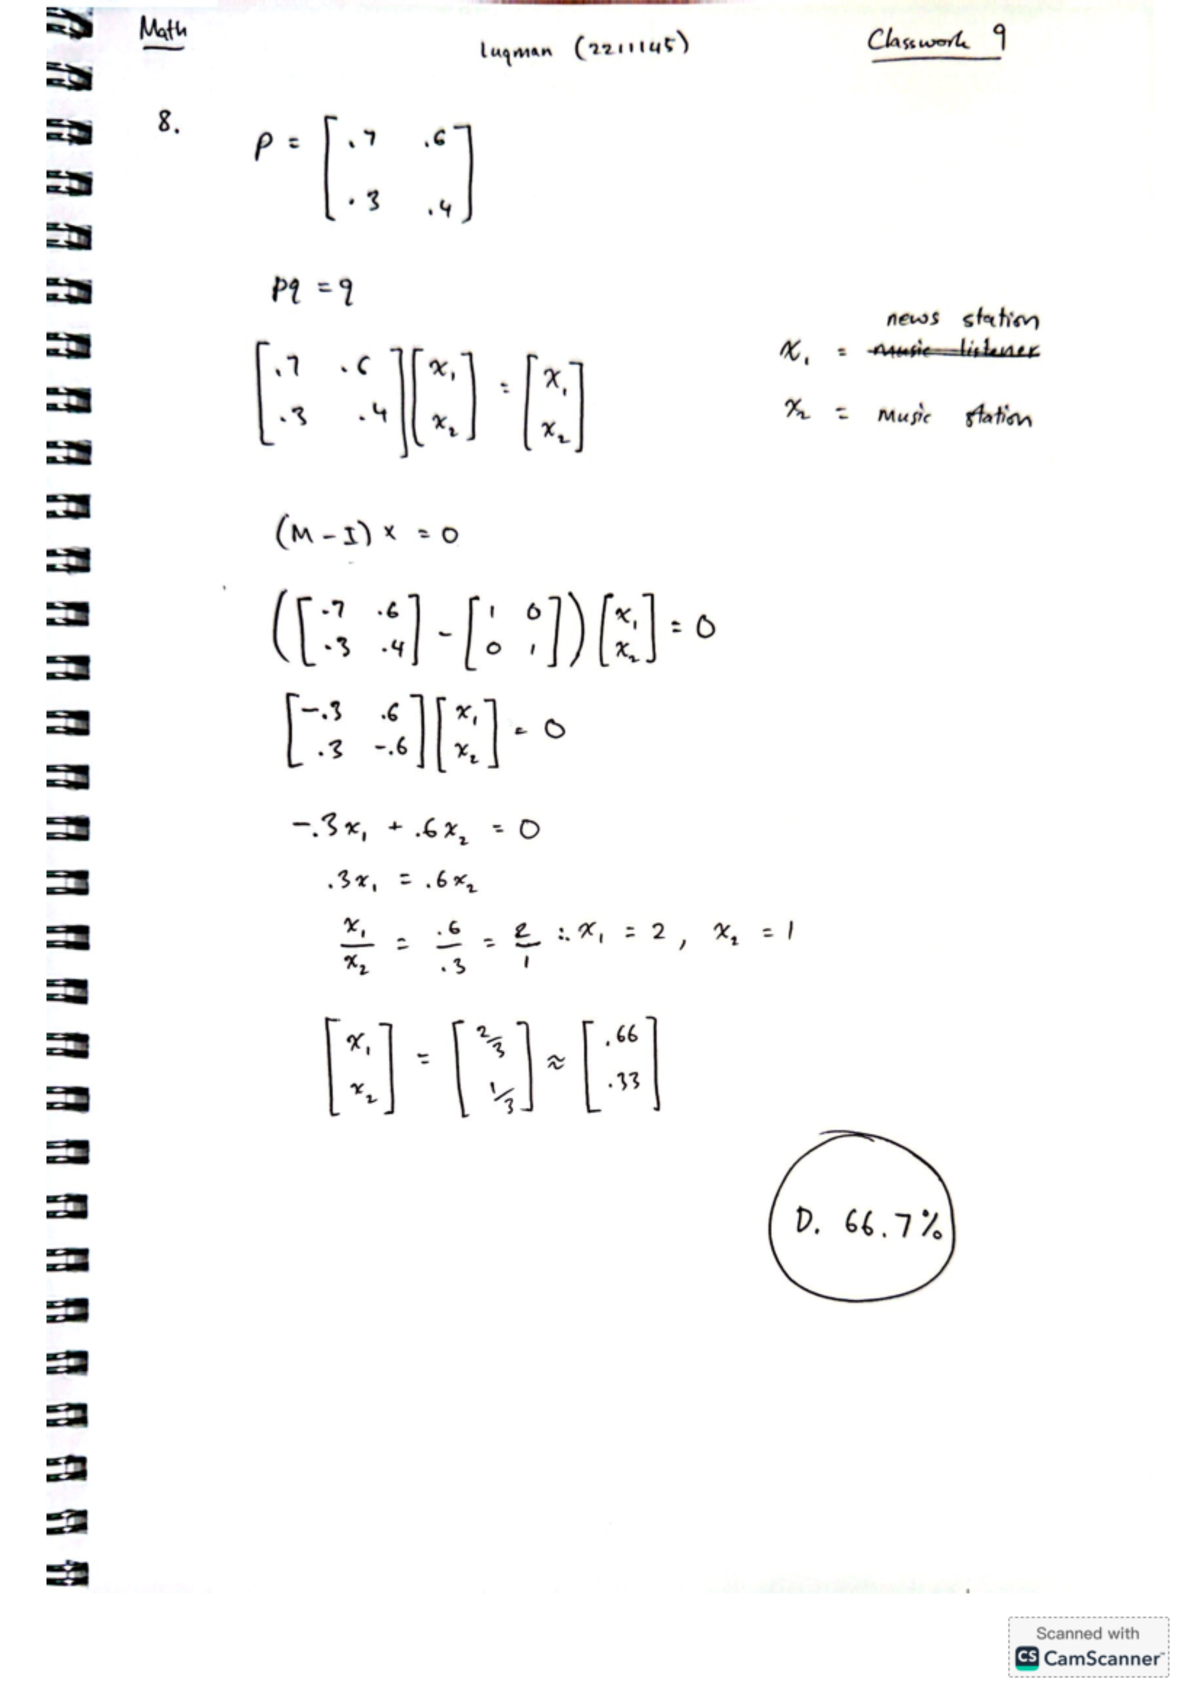 Math
luqman (2211145)
Classwork 9
8.
P = [.7 .6
.3 .4]
Pq = q
[.7 .6
.3 .4] [x₁
x₂] = [x₁
x₂]
news station
x₁ = music listener
x₂ = music station
(M - I) x = 0
([.7 .6
.3 .4] - [1 0
0 1]) [x₁
x₂] = 0
[-.3 .6
.3 -.6] [x₁
x₂] = 0
-.3x₁ + .6x₂ = 0
.3x₁ = .6x₂
x₁/x₂ = .6/.3 = 2/1 ∴ x₁ = 2, x₂ = 1
[x₁
x₂] = [2/3
1/3] ≈ [.66
.33]
D. 66.7%
Scanned with
CS CamScanner™